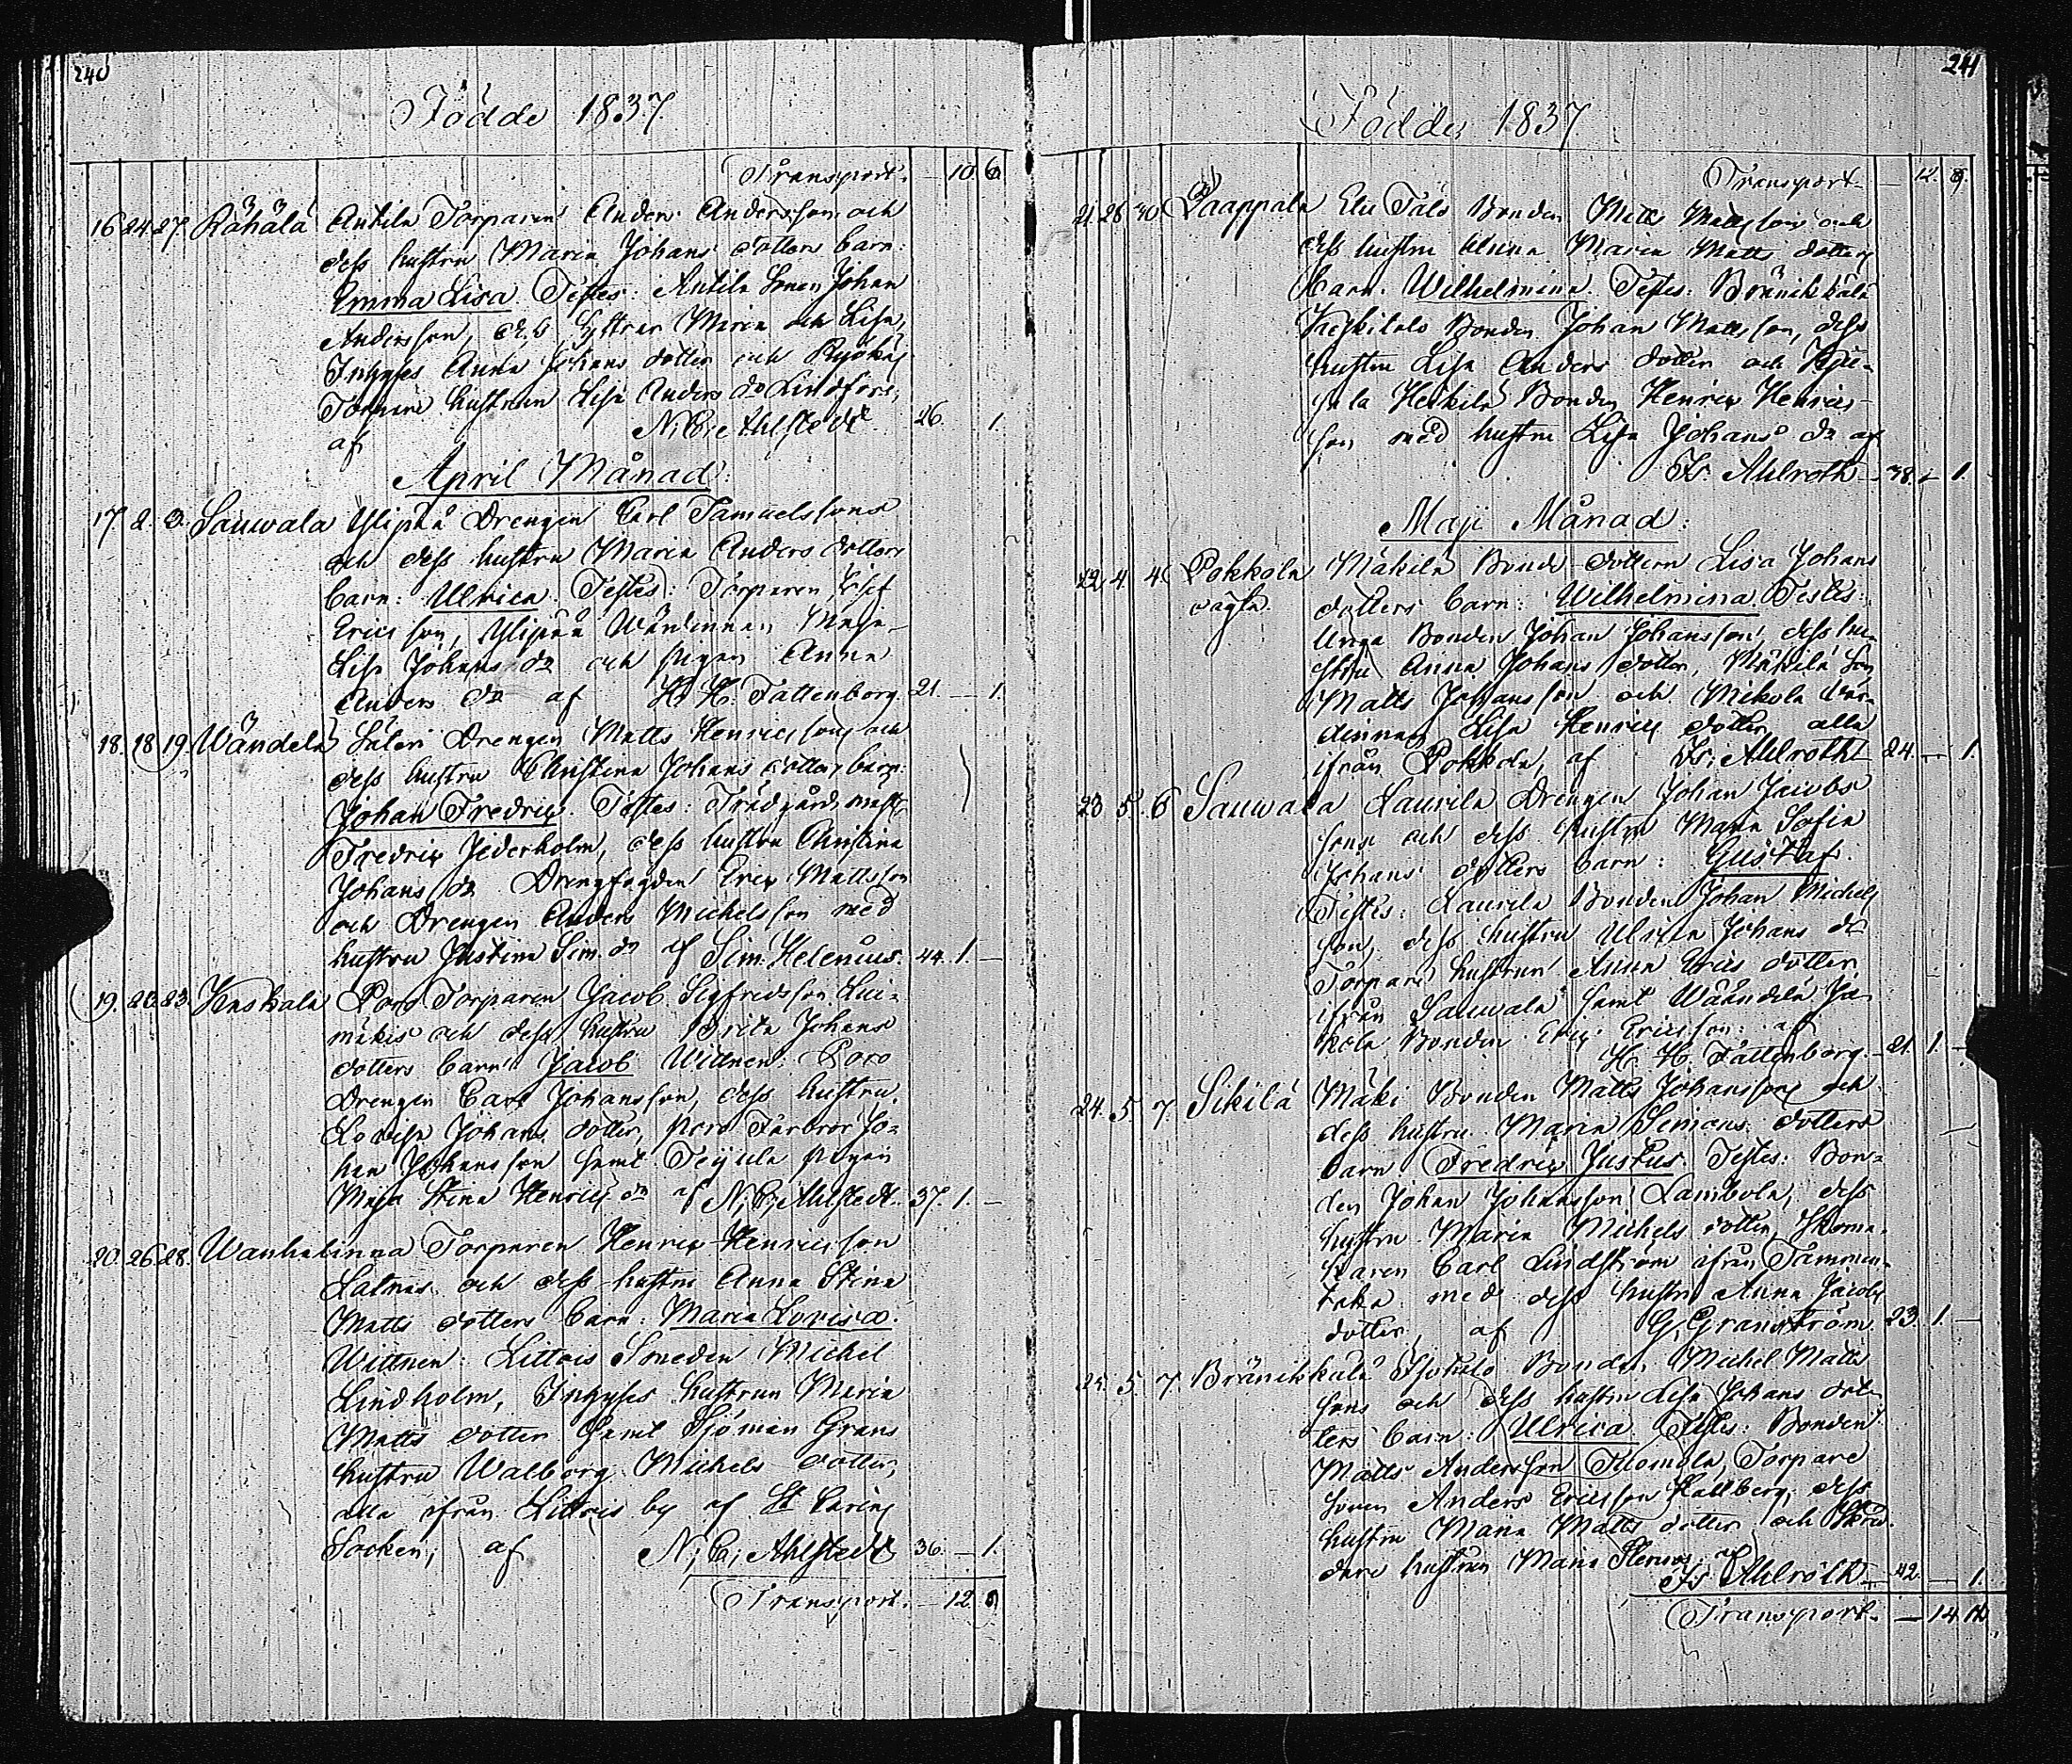 240
Födde 1837
Transport. — 10. 6
16. 24. 27. Rähälä Antila Torparens Anders Andersson och
dess hustru Maria Johans dotters barn:
Emma Lisa. Testes: Antila Sonen Johan
Andersson, dess Systrar Maria och Lisa,
Inhyses Anna Johans dotter och
Torpare hustrun Lisa Anders dr Lindfors,
af N. C. Ahlstedt. 26. 1.
April Månad:
17. 2. 3. Sauwala Ylipää Drengen Carl Samuelssons
och dess hustru Maria Anders dotters
barn: Ulrica. Testes: Torparen
Ericsson, Ylipää Wärdinnan Maja
Lisa Johans dr och pigan Anna
Anders dr af H. H. Fattenborg. 21. — 1.
18. 18. 19. Wändelä Säteri Drengen Matts Henricssons och
dess hustru Christina Johans dotters barn:
Johan Fredric. Testes: Trädgårds mäst.
Fredric Jederholm, dess hustru Christina
Johans dr Drengfogden Eric Mattsson
och Drengen Anders Michelsson med
hustru Justina Sim. dr af Sim. Helenius. 44. 1. —
19. 20. 23. Kaskala Poro Torparen Jacob Sigfredsson
och dess hustru Brita Johans
dotters barn Jacob Wittnen: Poro
Drengen Carl Johansson, dess hustru
Lovisa Johans dotter, poro Farbror Jo-
han Johansson samt Teijula pigan
Maja Stina Henrics dr af N. C. Ahlstedt. 37. 1. —
20. 26. 28. Wanhalinna Torparen Henric Henricsson
och dess hustru Anna Stina
Matts dotters barn: Maria Lovisa.
Wittnen: Littois Smeden Michel
Lindholm, Inhyses hustrun Maria
Matts dotter samt Sjöman Grans
hustru Walborg Michels dotter,
alla ifrån Littois by af St. Carins
Socken, af N. C. Ahlstedt 36. — 1.
Transport. — 12. 9
241
Födde 1837
Transport — 12. 9
21. 28. 30 Paappala Talo Bonden Matts Mattsson och
dess hustru Anna Maria Matts dotters
barn. Wilhelmina. Testes: Bränikkälä
Bonden Johan Mattsson, dess
hustru Lisa Anders dotter och
Heikilä Bonden Henric Henrics-
son med hustru Lisa Johans dr af
Is. Ahlroth — 38. — 1.
Maji Månad:
22. 4. 4. Pokkola Mäkilä Bonde dottern Lisa Johans
dotters barn: Wilhelmina. Testes:
Unga Bonden Johan Johansson, dess hu-
stru Anna Johans dotter, Mäkilä Son
Matts Johansson och Mikola Wär-
dinnan Lisa Henrics dotter, alla
ifrån Pokkola, af Is. Ahlroth 24. — 1.
23. 5. 6. Sauwala Laurila Drengen Johan Jacobs
sons och dess hustru Maria Sofia
Johans dotters barn: Gustaf.
Testes: Laurila Bonden Johan Michels
son, dess hustru Ulrica Johans dr
Torpare hustrun Anna Erics dotter
ifrån Sauwala samt Wäändelä Ja-
kola Bonden Eric Ericsson: af
H. H. Fattenborg. — 21. 1. —
24. 5. 7. Sikilä Mäki Bonden Matts Johanssons och
dess hustru Maria Simons dotters
barn Fredric Justus. Testes: Bon-
den Johan Johansson Lambola, dess
hustru Maria Michels dotter, Skoma-
karen Carl Lindström ifrån Tammen-
taka med dess hustru Anna Jacobs
dotter, af G. Granström. 23. 1. —
25. 5. 7. Bränikkälä Bonden Michel Matts
sons och dess hustru Lisa Johans dot-
ters barn: Ulrica. Testes: Bonden
Matts Andersson Tuomola, Torpare
sonen Anders Ericsson Hallberg, dess
hustru Maria Matts dotter och Skräd-
dare hustrun Maria af
Is. Ahlroth — 42. — 1.
Transport. — 14. 10